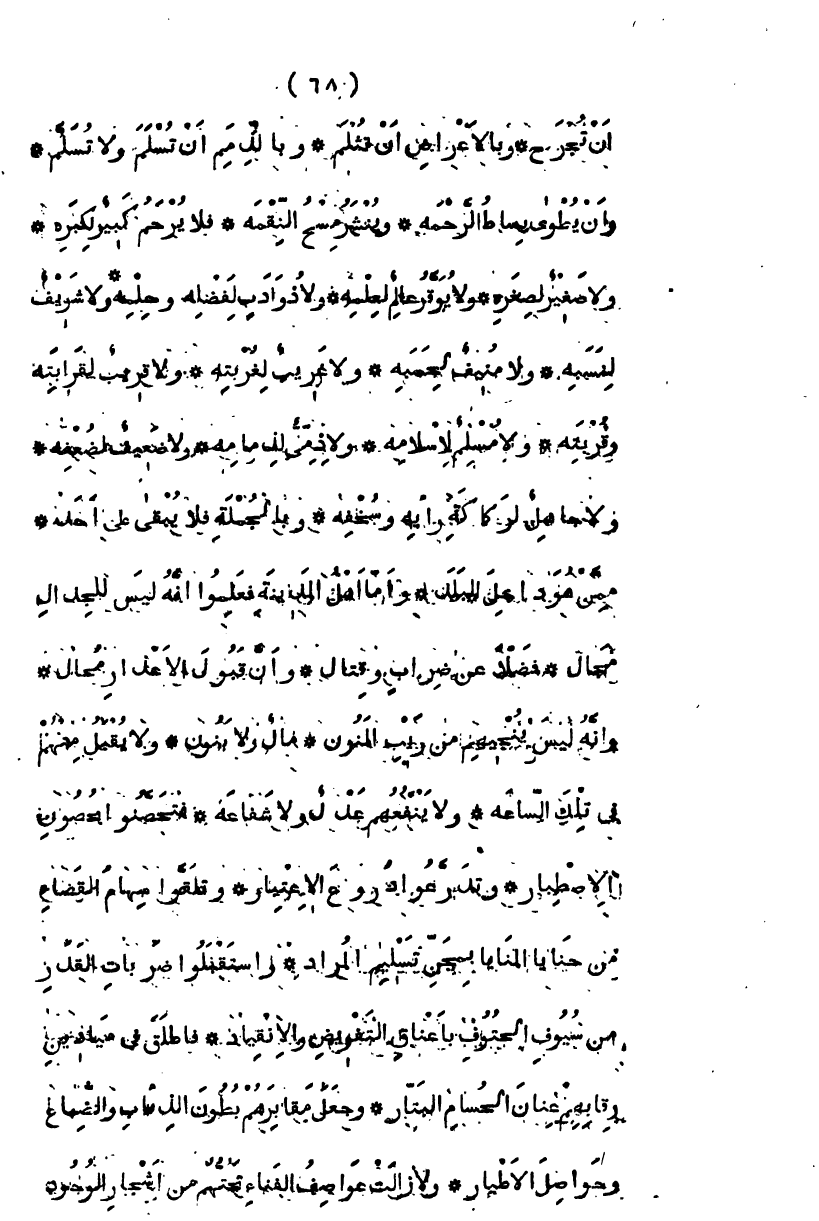 (٦٨٠)
اَنْ تُجْرَح * وَبالاَعْراضِ اَنْ تُثْلَم * وبالذِّمَمِ اَنْ تُسْلَمَ ولا تُسَلَّم *
وَاَنْ يُطْوٰى بِساطُ الرَّحْمَه * ويُنْشَرَ مِسْحُ النِّقْمَه * فلا يُرْحَمُ كَبيرٌ لِكِبَرِه *
ولا صَغيرٌ لِصِغَرِه * ولا يُوَقَّرُ عالِمٌ لِعِلْمِه * ولا ذُو اَدَبٍ لِفَضْلِه وحِلْمِه * ولا شَريفٌ
لِنَسَبِه * ولا مُنيفٌ لِحَسَبِه * ولا غَريبٌ لِغُرْبتِه * ولا قريبٌ لِقَرابَتِه
وقُرْبَتِه * ولا مُسْلِمٌ لِاِسْلامِه * ولا ذِمِّىٌّ لِذِمامِه * ولا ضَعيفٌ لِضُعْفِه *
ولا جاهِلٌ لرَكاكَةِ رَأيِه وسُخْفِه * وبالجُمْلَةِ فلا يُبْقىٰ على اَحَدٍ *
مِمَّنْ هُوَ داخِلَ البَلَد * وَاَمّا اَهْلُ المَدينَةِ فعَلِمُوا اَنَّهُ ليسَ للجِدالِ
مَجال * فَضْلاً عن ضِرابٍ وقِتال * واَنَّ قَبُولَ الاَعْذارِ مُحال *
وانَّهُ لَيْسَ يُنْجيهِم من رَيْبِ المَنُون * مالٌ ولا بَنُون * ولا يُقْبَلُ مِنْهُمْ
فى تِلْكَ السّاعَه * ولا يَنْفَعُهُم عَدْلٌ ولا شَفاعَه * فتَحَصَّنُوا بحُصُونِ
الاِصْطِبار * وتَدَرَّعُوا دُرُوعَ الاِعْتِبار * وتلَقَّوْا سِهامَ القَضاءِ
من حنَايا المَنايا بِمِجَنِّ تَسْليمِ المُراد * واستَقْبَلُوا ضَرَباتِ القَدَرِ
من سُيُوفِ الحُتُوفِ باَعْناقِ التَّفْويضِ والاِنْقِياد * فاطلَقَ فى مَيادينِ
رِقابِهِمْ عِنانَ الحُسامِ البَتّار * وجعَلَ مَقابِرَهُمْ بُطُونَ الذِّئابِ والضِّباعِ
وحَواصِلَ الاَطْيار * ولا زالَتْ عَواصِفُ الفَناءِ تَحُتُّهُمْ من اَشْجارِ الوُجُودِ